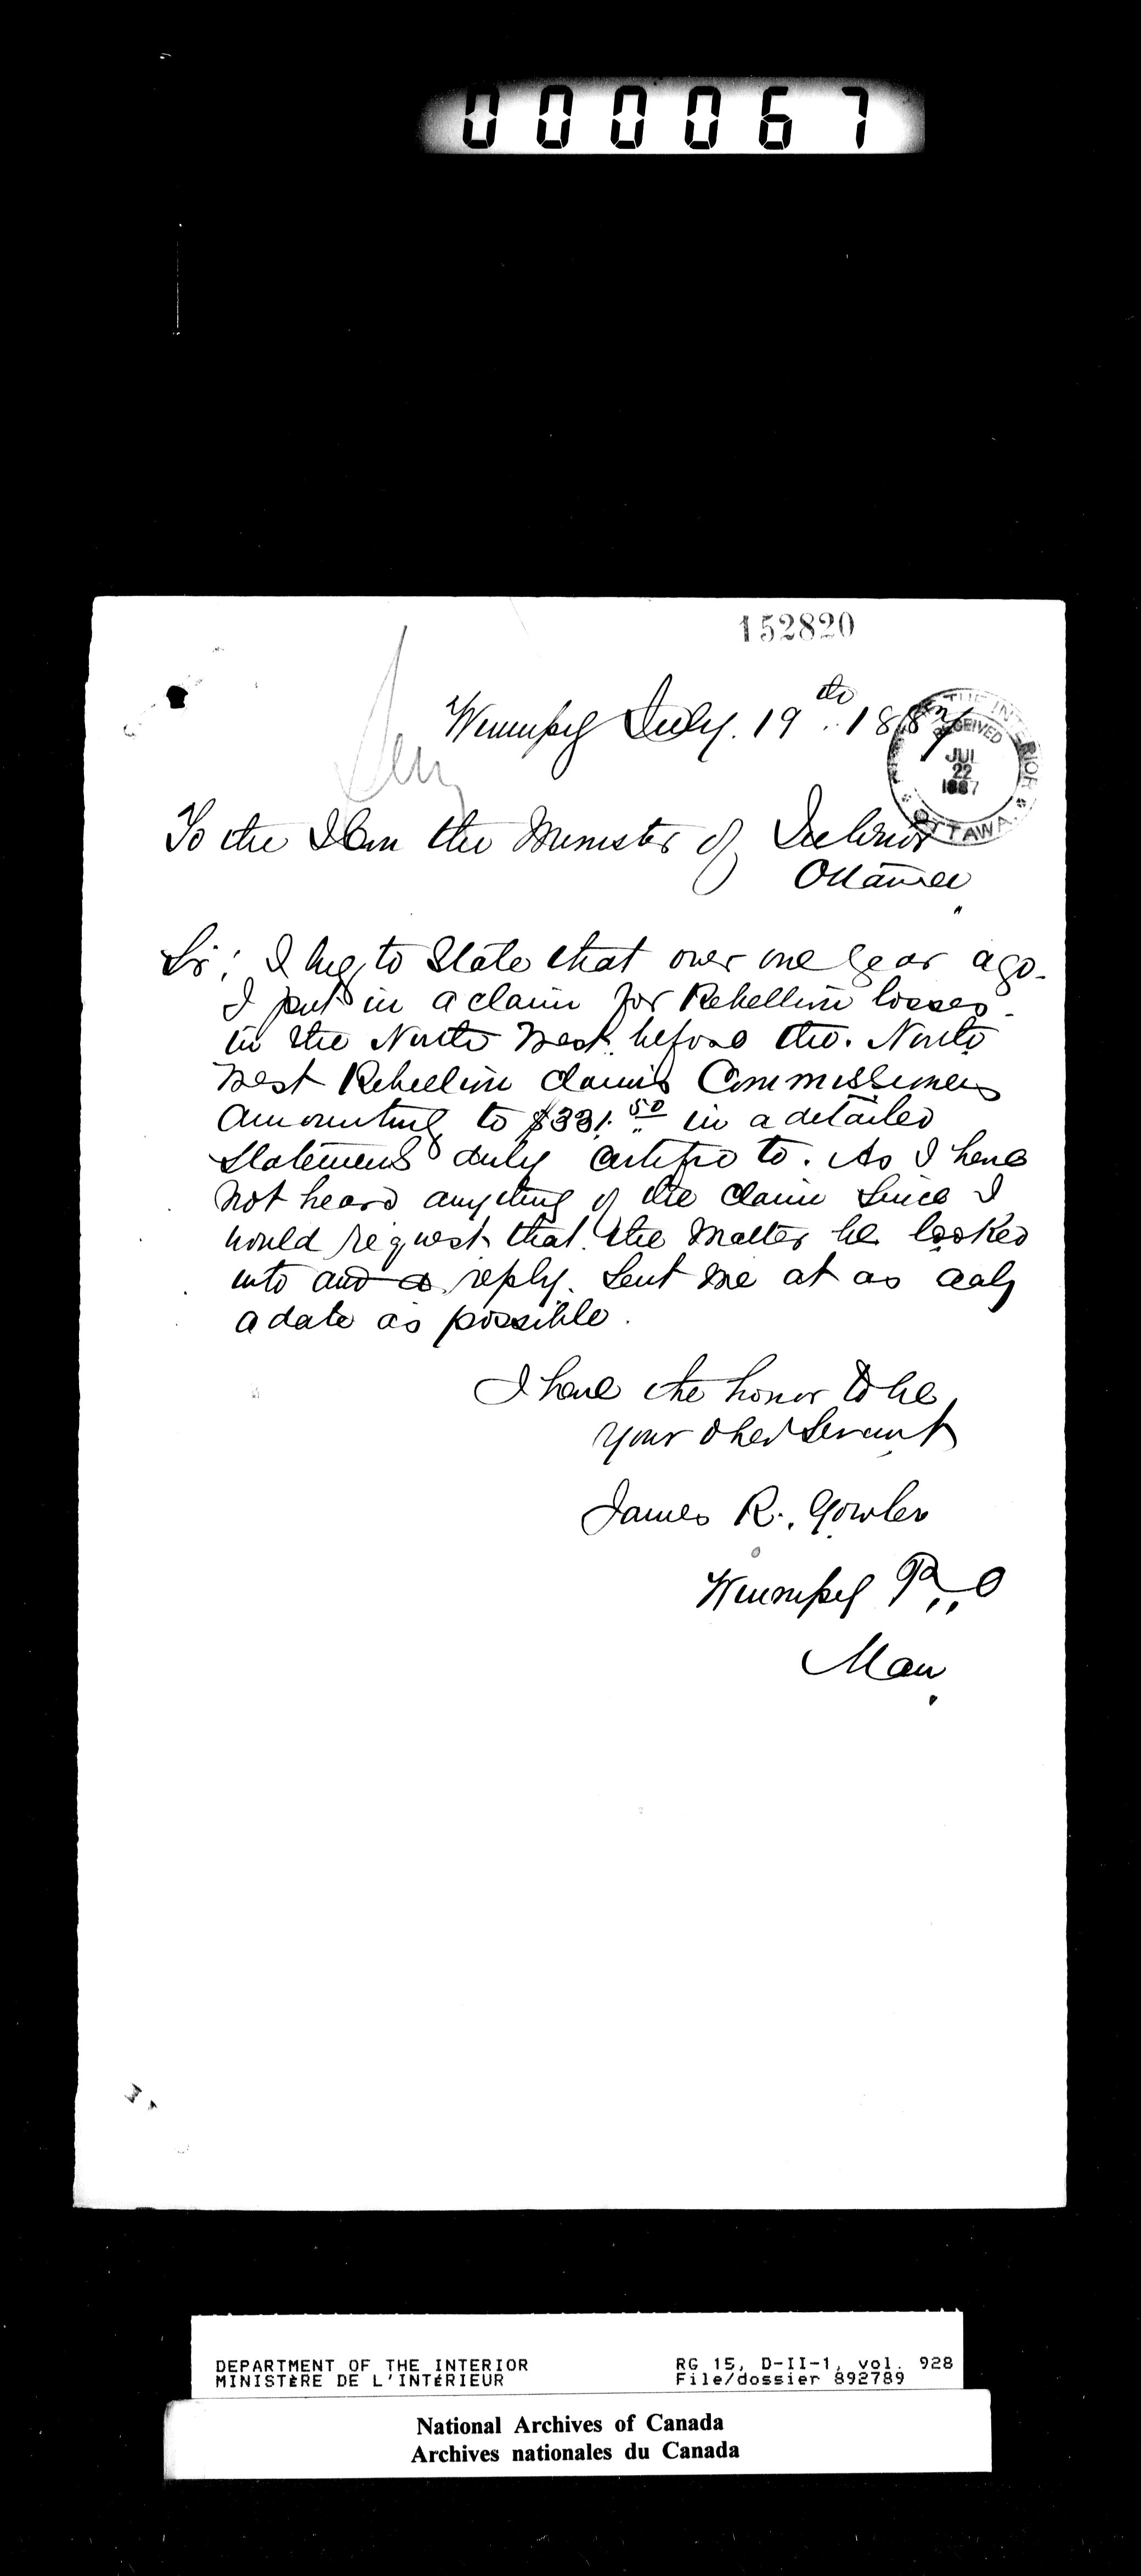 000067
152820
Winnipeg July. 19th. 1887
THE INTERIOR
RECEIVED
JUL
22
1887
OTTAWA
To the Hon the Minister of Interior
Ottawa
Sir; I beg to State that over one year ago
I put in a claim for Rebellion losses
in the North West. before the. North
West Rebellion claims Commissioners
amounting to $331.50 in a detailed
Statement duly certified to. As I have
not heard anything of the claim Since I
would request that. the Matter be looked
into and a reply. Sent me at as early
a date as possible.
I have the honor to be
your obed Servant
James R. Gowler
Winnipeg P.O
Man.
DEPARTMENT OF THE INTERIOR
MINISTÈRE DE L'INTÉRIEUR
RG 15, D-II-1, vol. 928
File/dossier 892789
National Archives of Canada
Archives nationales du Canada